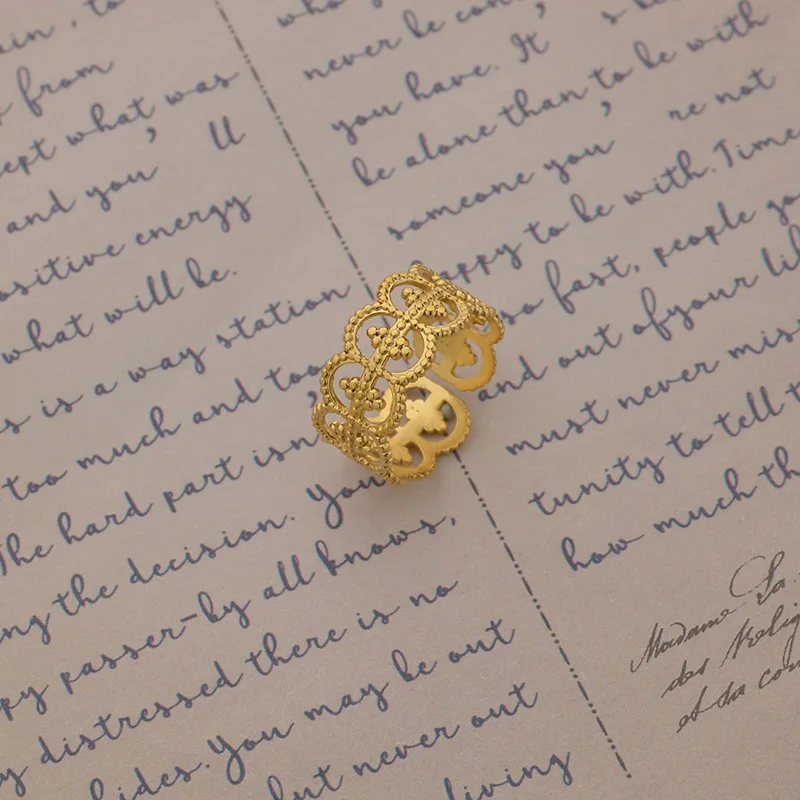 from
what was
and you'll
positive energy
what will be.
is a way station
too much and too
The hard part isn'
the decision. You
passer-by all knows,
distressed there is no
You may be out
but never out
living
never be
you have. It's
be alone than to be with
someone you're not
happy to be with. Time
so fast, people
and out of your
must never
tunity to tell
how much
Madame
des
et sa